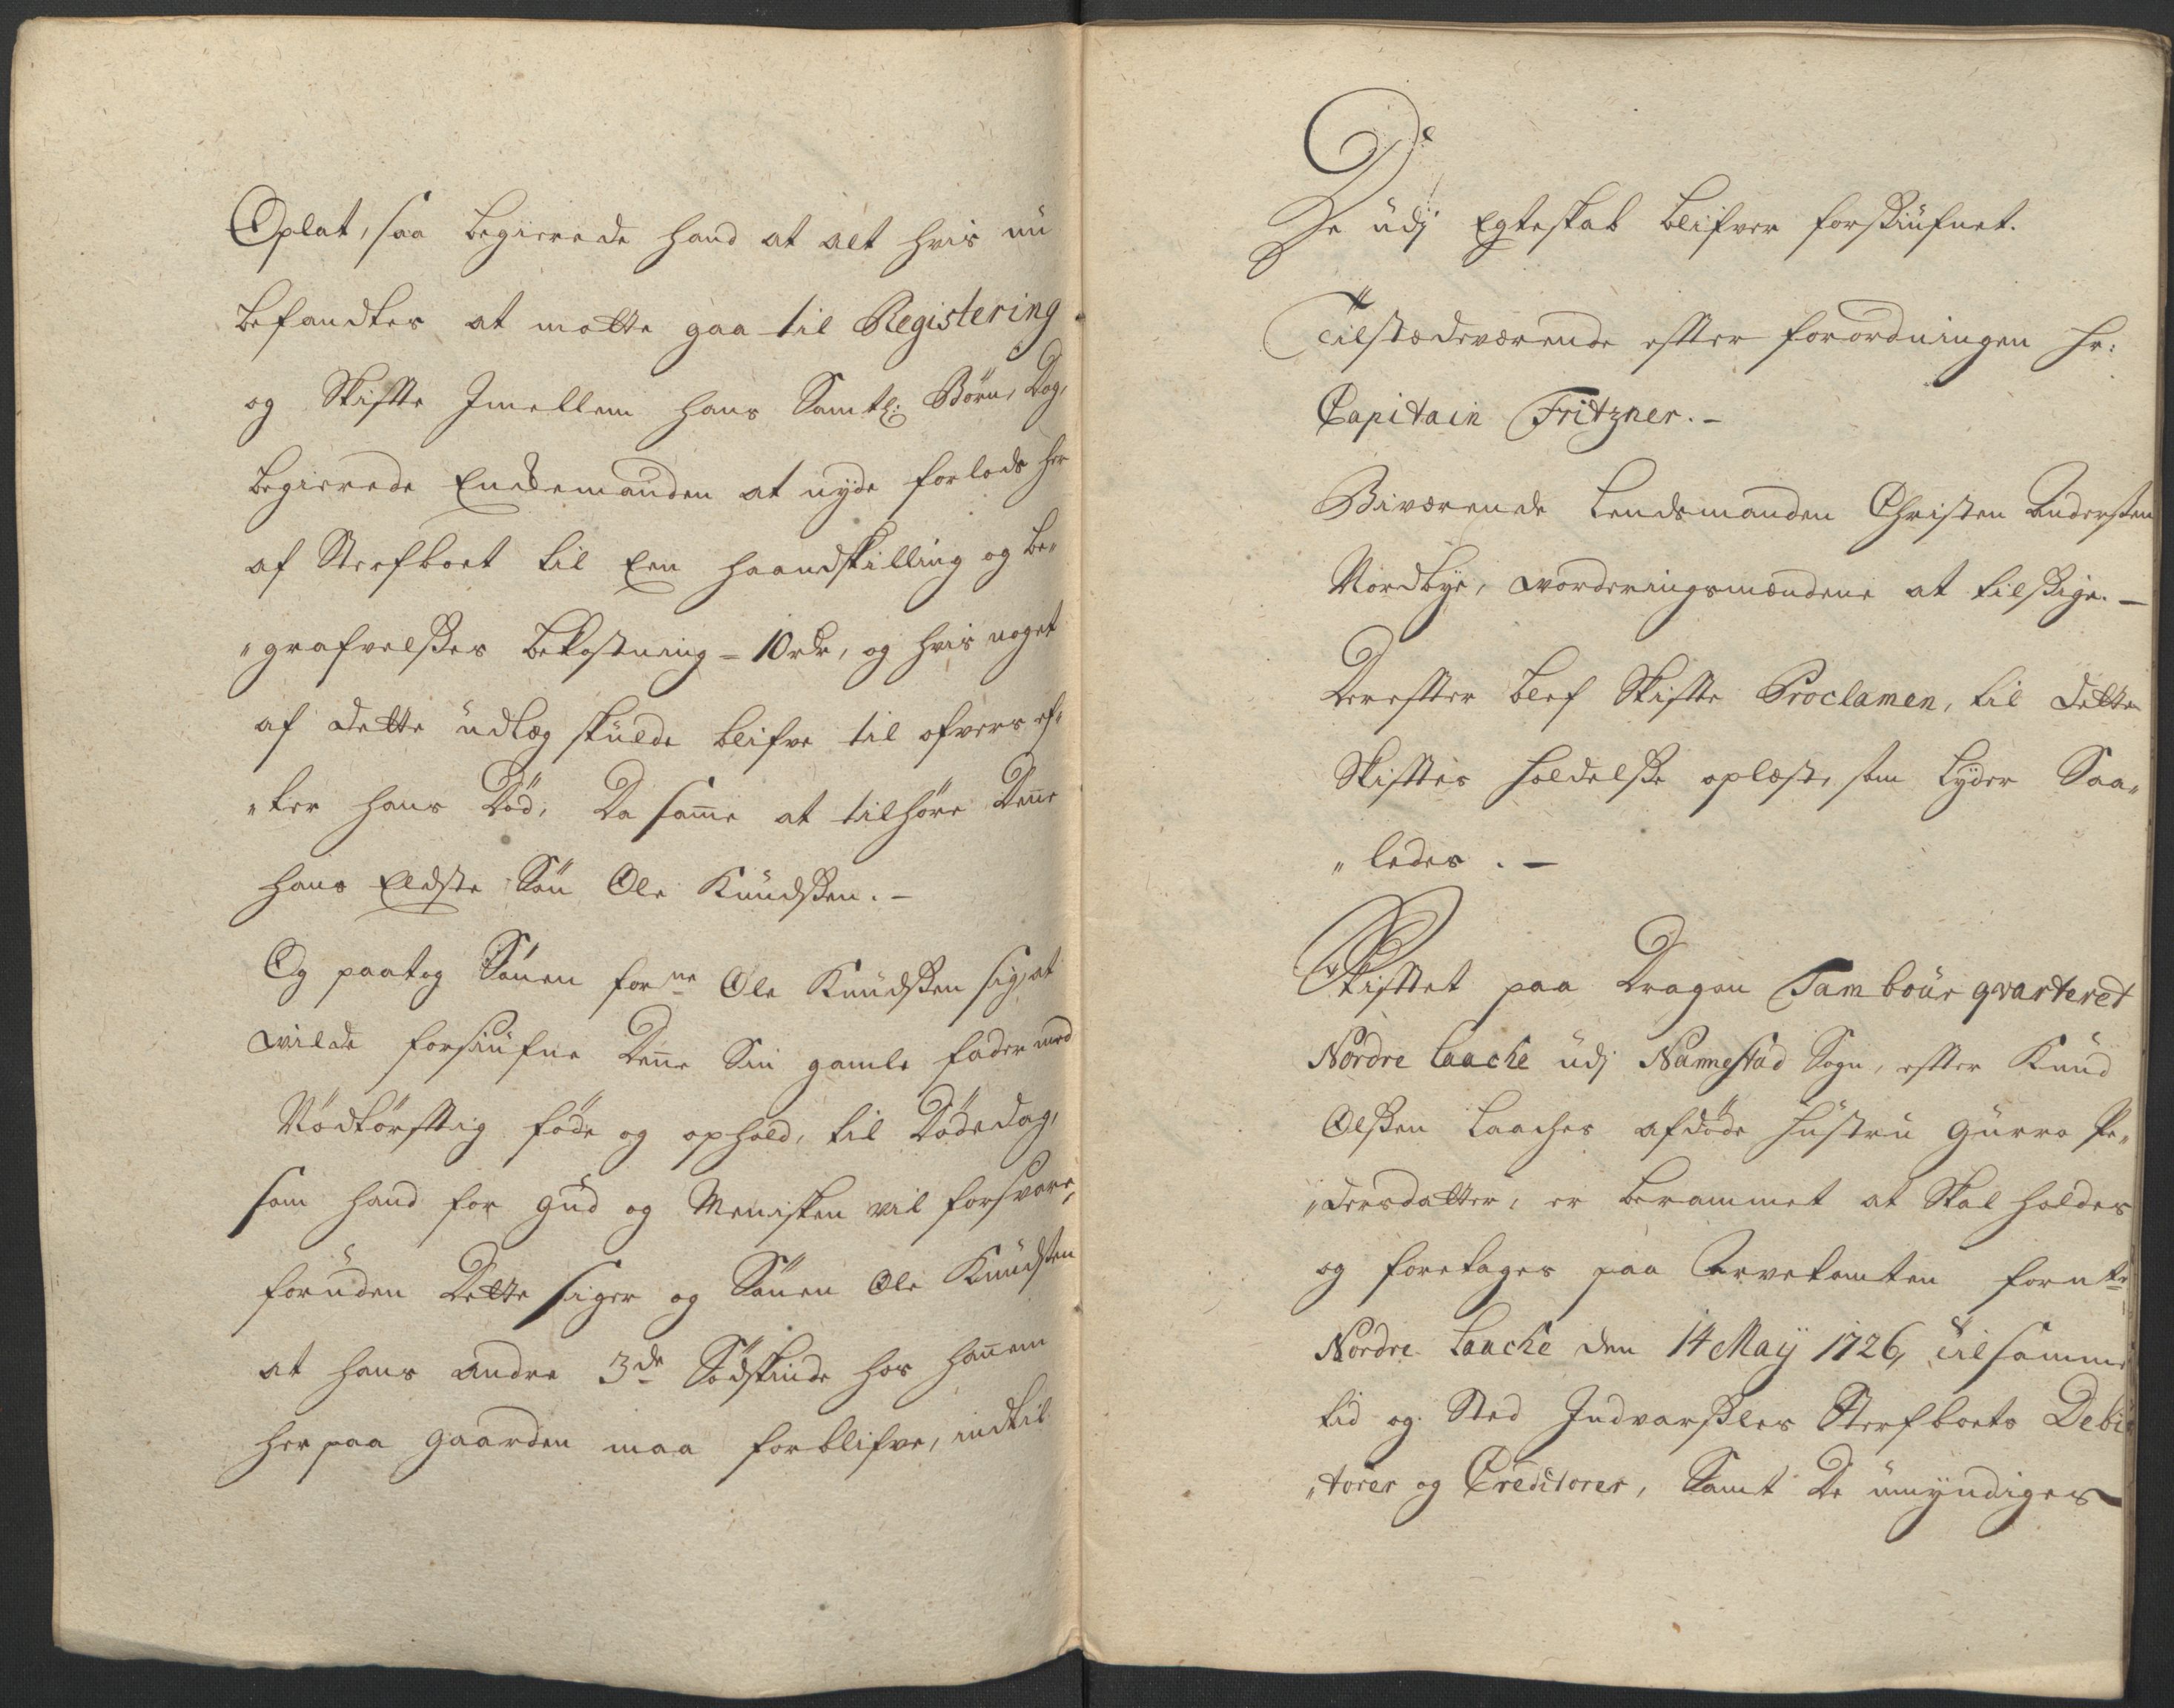 Oplat, saa begierede hand at alt hvis nu
befandtes at motte gaa til Registering
og Skiffte Jmellem hans Samtl: Börn, Dog,
begierede Enckemanden at nyde forlods her
af Sterfboet til Een haandskilling og be„
„grafvelsßes bekostning = 10 rdr, og hvis noget
af dette udlæg skulde blifve til ofvers ef„
„ter hans Död, Da sam̅e at tilhöre Den̅e
hans Eldste Sön Ole Knudsßen. –
Og paatog Sönen forne Ole Knudsßen sig, at
wilde forsiufne Den̅e Sin gamle fader med
Nödtörfftig föde og ophold, til Dödedag,
som hand for Gud og Menisken vil forsvare,
foruden Dette siger og Sönen Ole Knudsßen
at hans andre 3de Södskinde hos han̅em
her paa gaarden maa forblifve, indtil
De
De udj Egteskab blifver forsßiufnet.
Tilstædeværende effter forordningen Hr:
Capitain Fritzner. –
Biværende Lendsmanden Christen Andersßen
Nordbye, worderingsmændene at tilsßige. –
Dereffter blef Skiffte Proclamen, til dette
Skifftes holdelsße oplæst, som lyder Saa„
„ledes . –
Skifftet paa Dragon Tambour qvarteret
Nordre Laache udj Nannestad Sogn, effter Knud
Olsßen Laaches afdöde Hustru Gurro Pe„
„dersdatter, er berammet at Skal holdes
og foretages paa Arvetomten fornte
Nordre Laache den 14 Maÿ 1726, til samme
tid og Sted Indvarsßles Sterfboets Debi„
„torer og Creditorer, Samt De umÿndiges